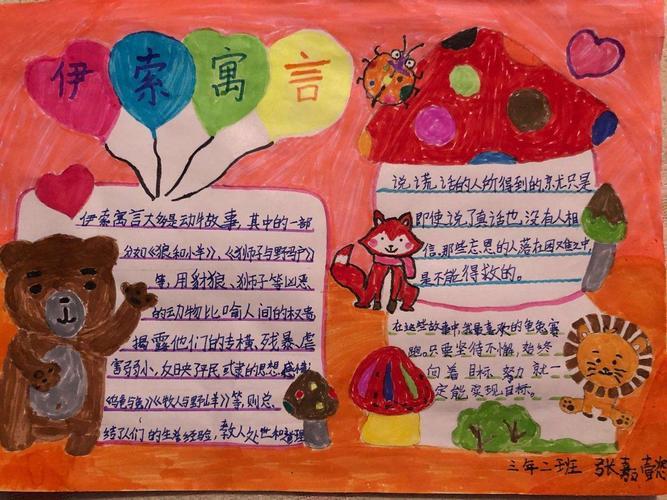 伊索寓言
伊索寓言大多是动物故事,其中的一部
分如《狼和小羊》、《狮子与野驴》
等,用豺狼、狮子等凶恶
的动物比喻人间的权贵
揭露他们的专横、残暴虐
害弱小,反映平民或奴的思想感情
《乌龟与兔》《牧人与野山羊》等,则总
结了人们的生活经验,教人处世和道理
说谎话的人所得到的,就只是
即使说了真话也没有人相
信。那些忘恩的人落在困难之中
是不能得救的。
在这些故事中,我最喜欢的龟兔赛
跑。只要坚持不懈,始终
向着目标努力就一
定能实现目标。
三年二班 张嘉懿